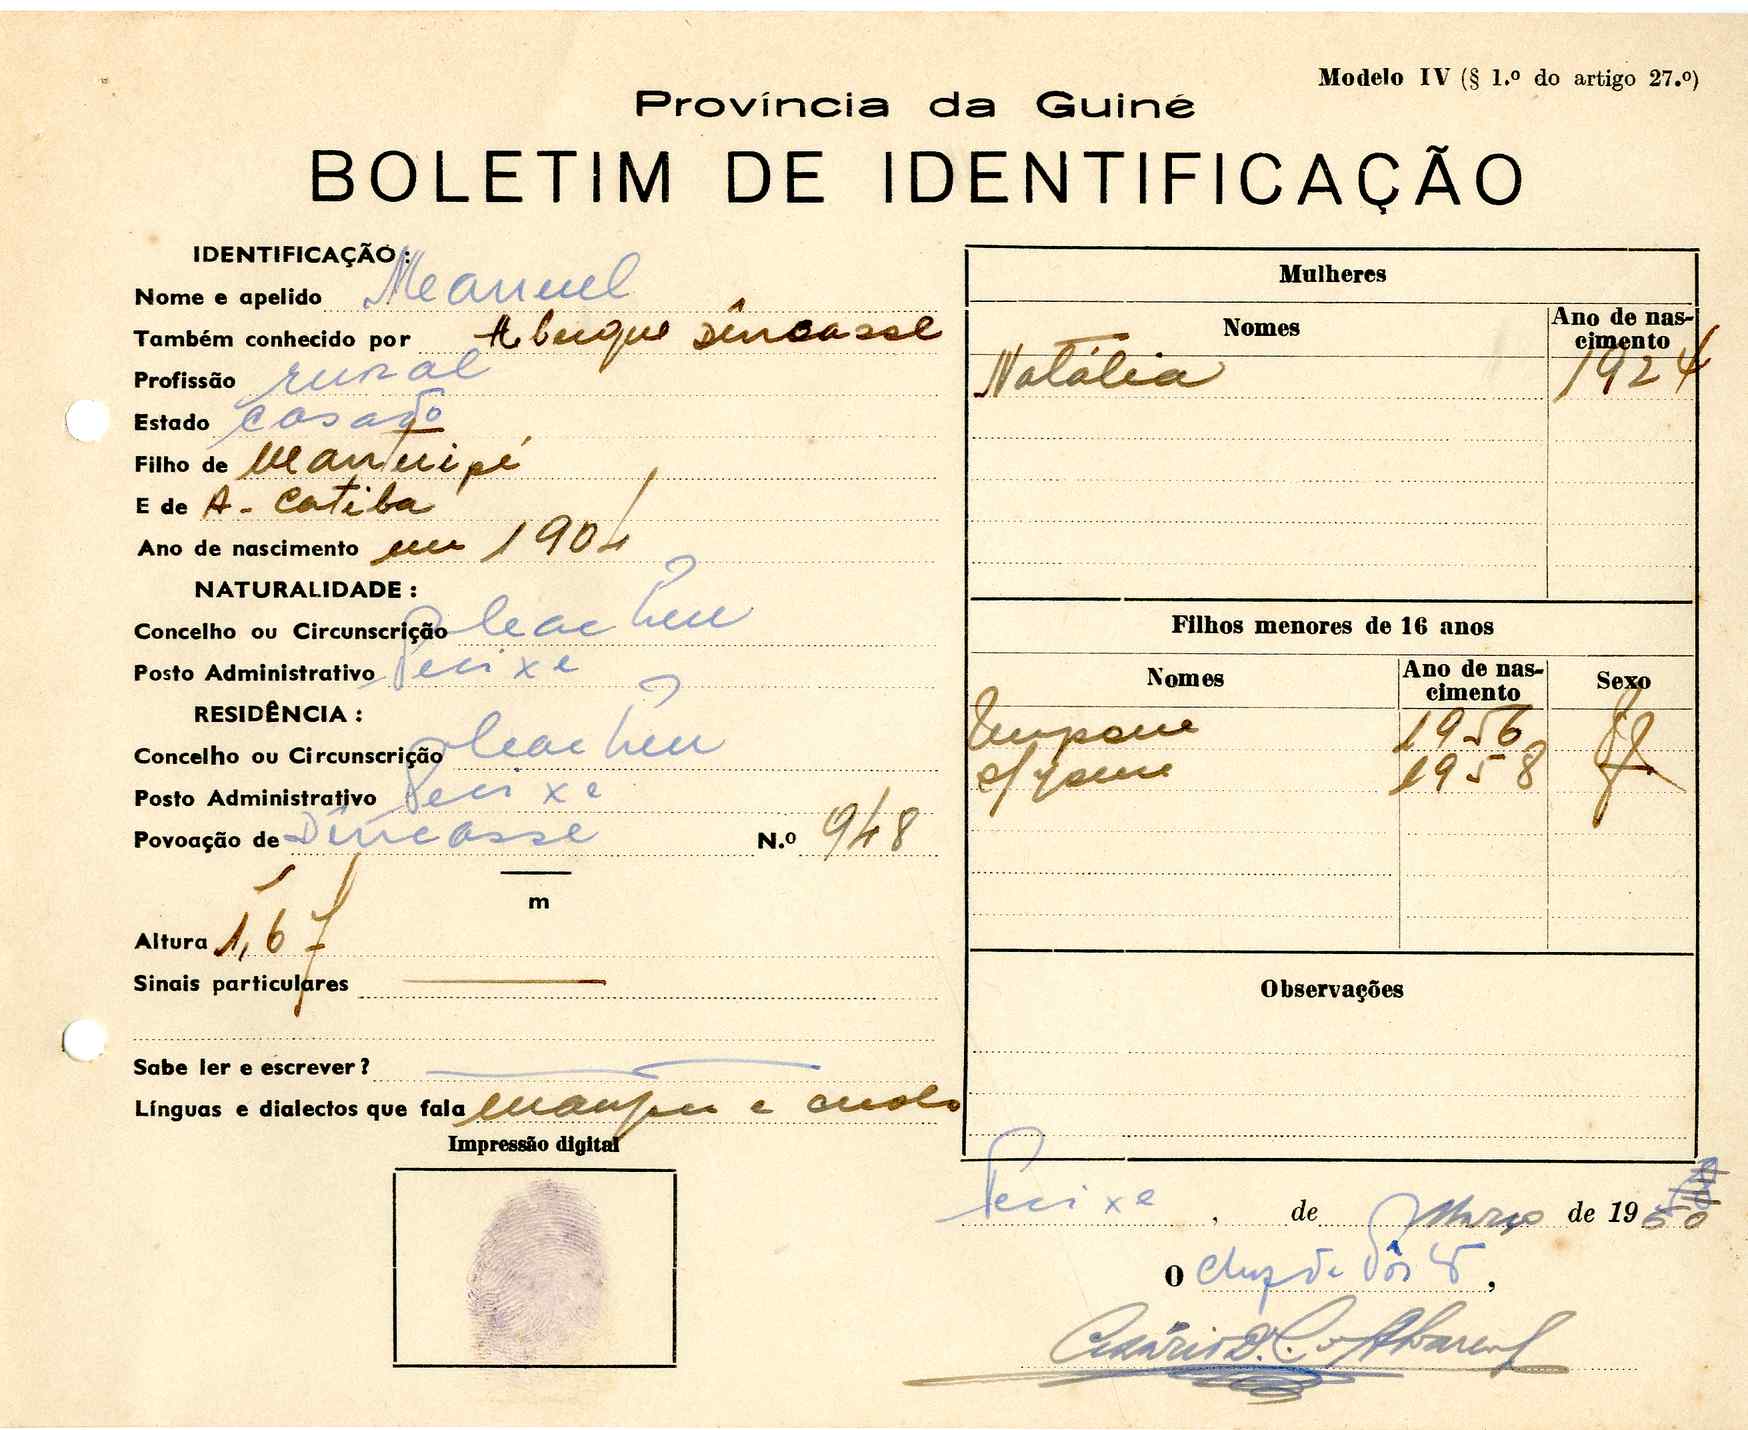 Modelo IV (§ 1.º do artigo 27.º)
Província da Guiné
BOLETIM DE IDENTIFICAÇÃO
IDENTIFICAÇÃO:
Nome e apelido Manuel
Também conhecido por Dincasse
Profissão rural
Estado casado
Filho de
E de A. Catiba
Ano de nascimento em 1904
NATURALIDADE:
Concelho ou Circunscrição Cacheu
Posto Administrativo Pecixe
RESIDÊNCIA:
Concelho ou Circunscrição Cacheu
Posto Administrativo Pecixe
Povoação de Dincasse N.º 948
m
Altura 1,67
Sinais particulares
Sabe ler e escrever?
Línguas e dialectos que fala e
Impressão digital
Mulheres
Nomes Ano de nas-
cimento
Natália 1924
Filhos menores de 16 anos
Nomes Ano de nas-
cimento Sexo
1956
1958
Observações
Pecixe, de Março de 19
O Chefe de Posto,